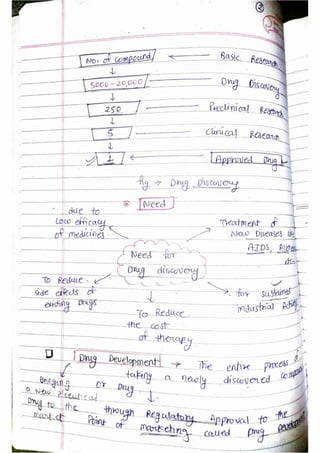 No. of compound ← Basic Research
5000 - 20,000 Drug Discovery
250 Preclinical Research
5 clinical Research
1 Approved Drug
fig → Drug Discovery
Need
due to
Low efficacy
of medicines.
Treatment of
New Diseases
AIDS,
etc
Need for
Drug discovery
To Reduce
side effects of
existing Drugs
To Reduce
the cost
of therapy
for sustained
industrial Activity
Drug Development → The entire process of
Bringing a new
Drug to the
market
or Drug
taking a newly discovered compound
through Regulatory Approval to the
Point of marketing called Drug Development